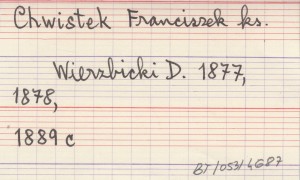 Chwistek Franciszek ks.
Wierzbicki D. 1877,
1878,
1889 c
BT/053/4687